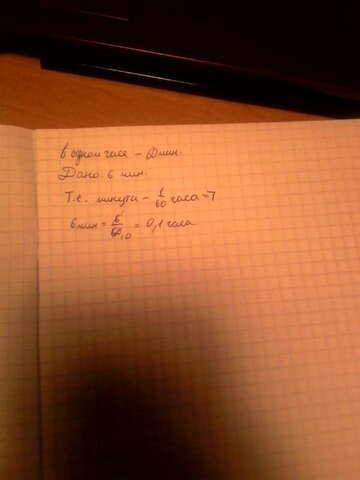 В одном часе - 60 мин.
Дано: 6 мин.
Т.е. минута - 1/60 часа =>
6 мин = 6/60 10 = 0,1 часа